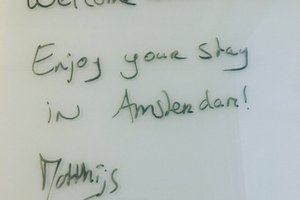 Welcome
Enjoy your stay
in Amsterdam!
Matthijs